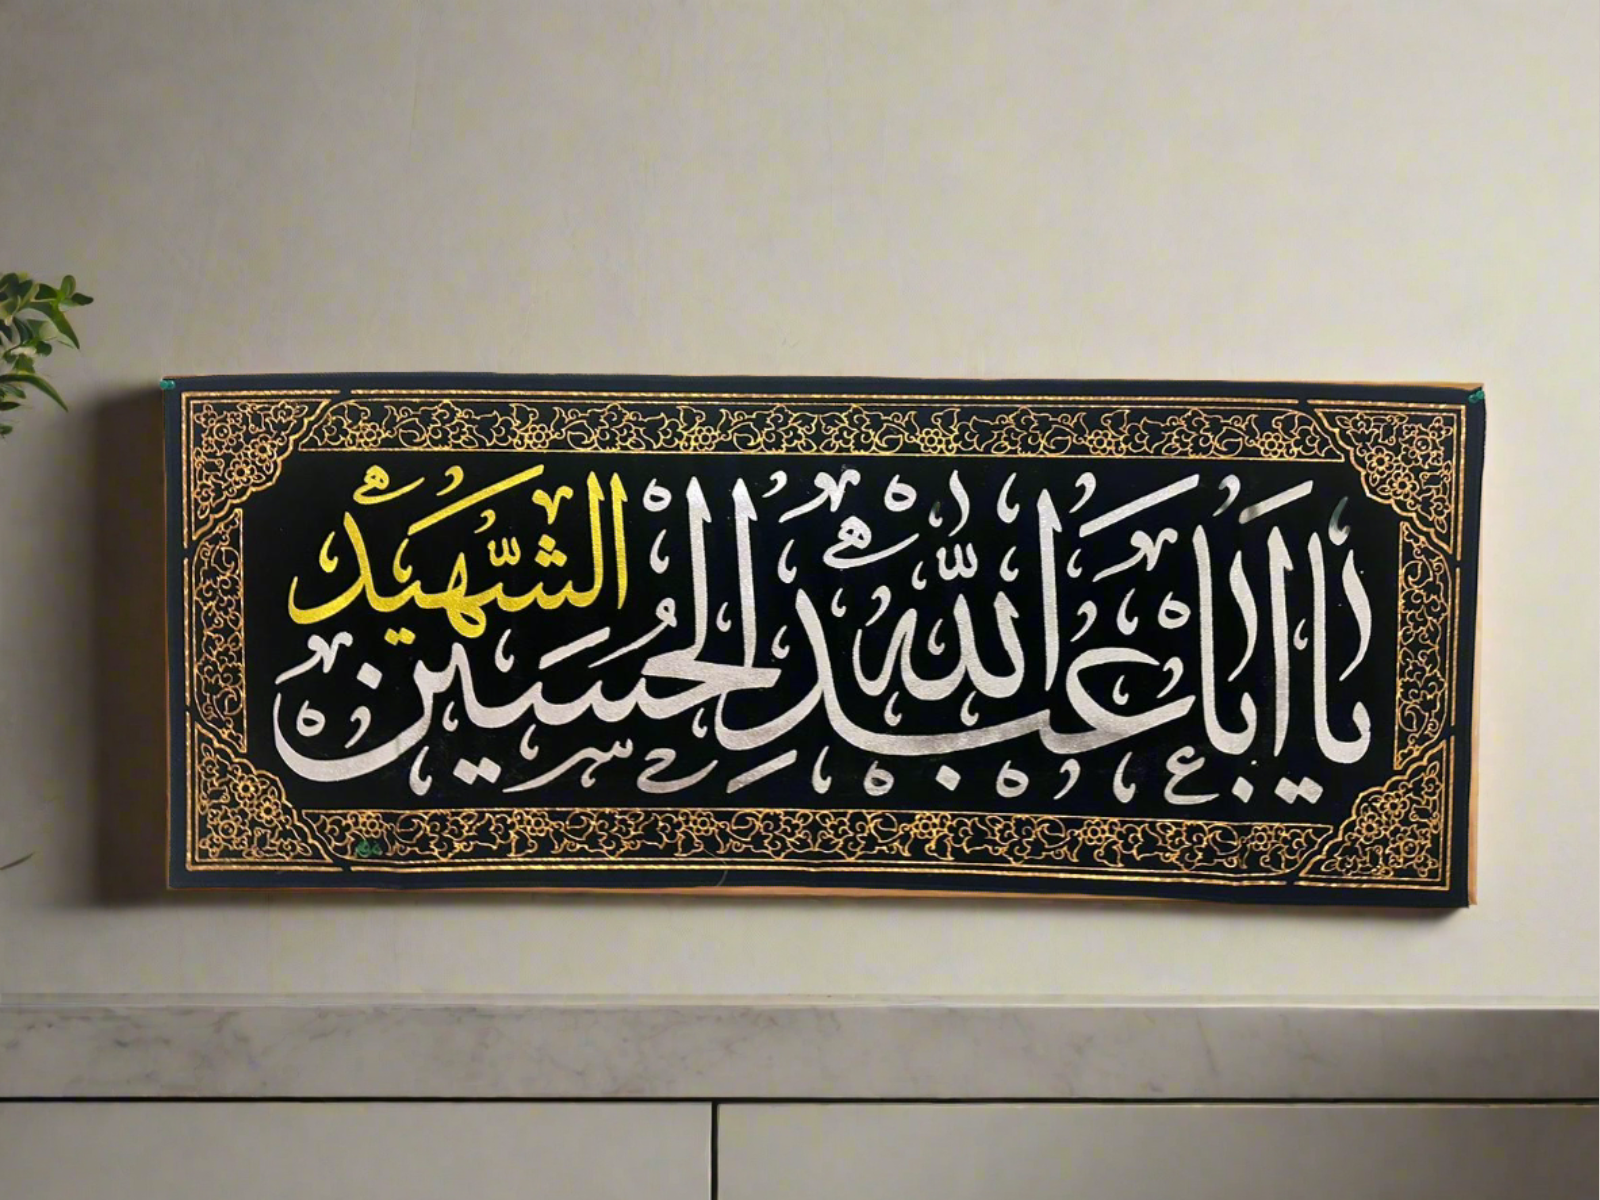 يا أبا عبد الله الحسين الشهيد